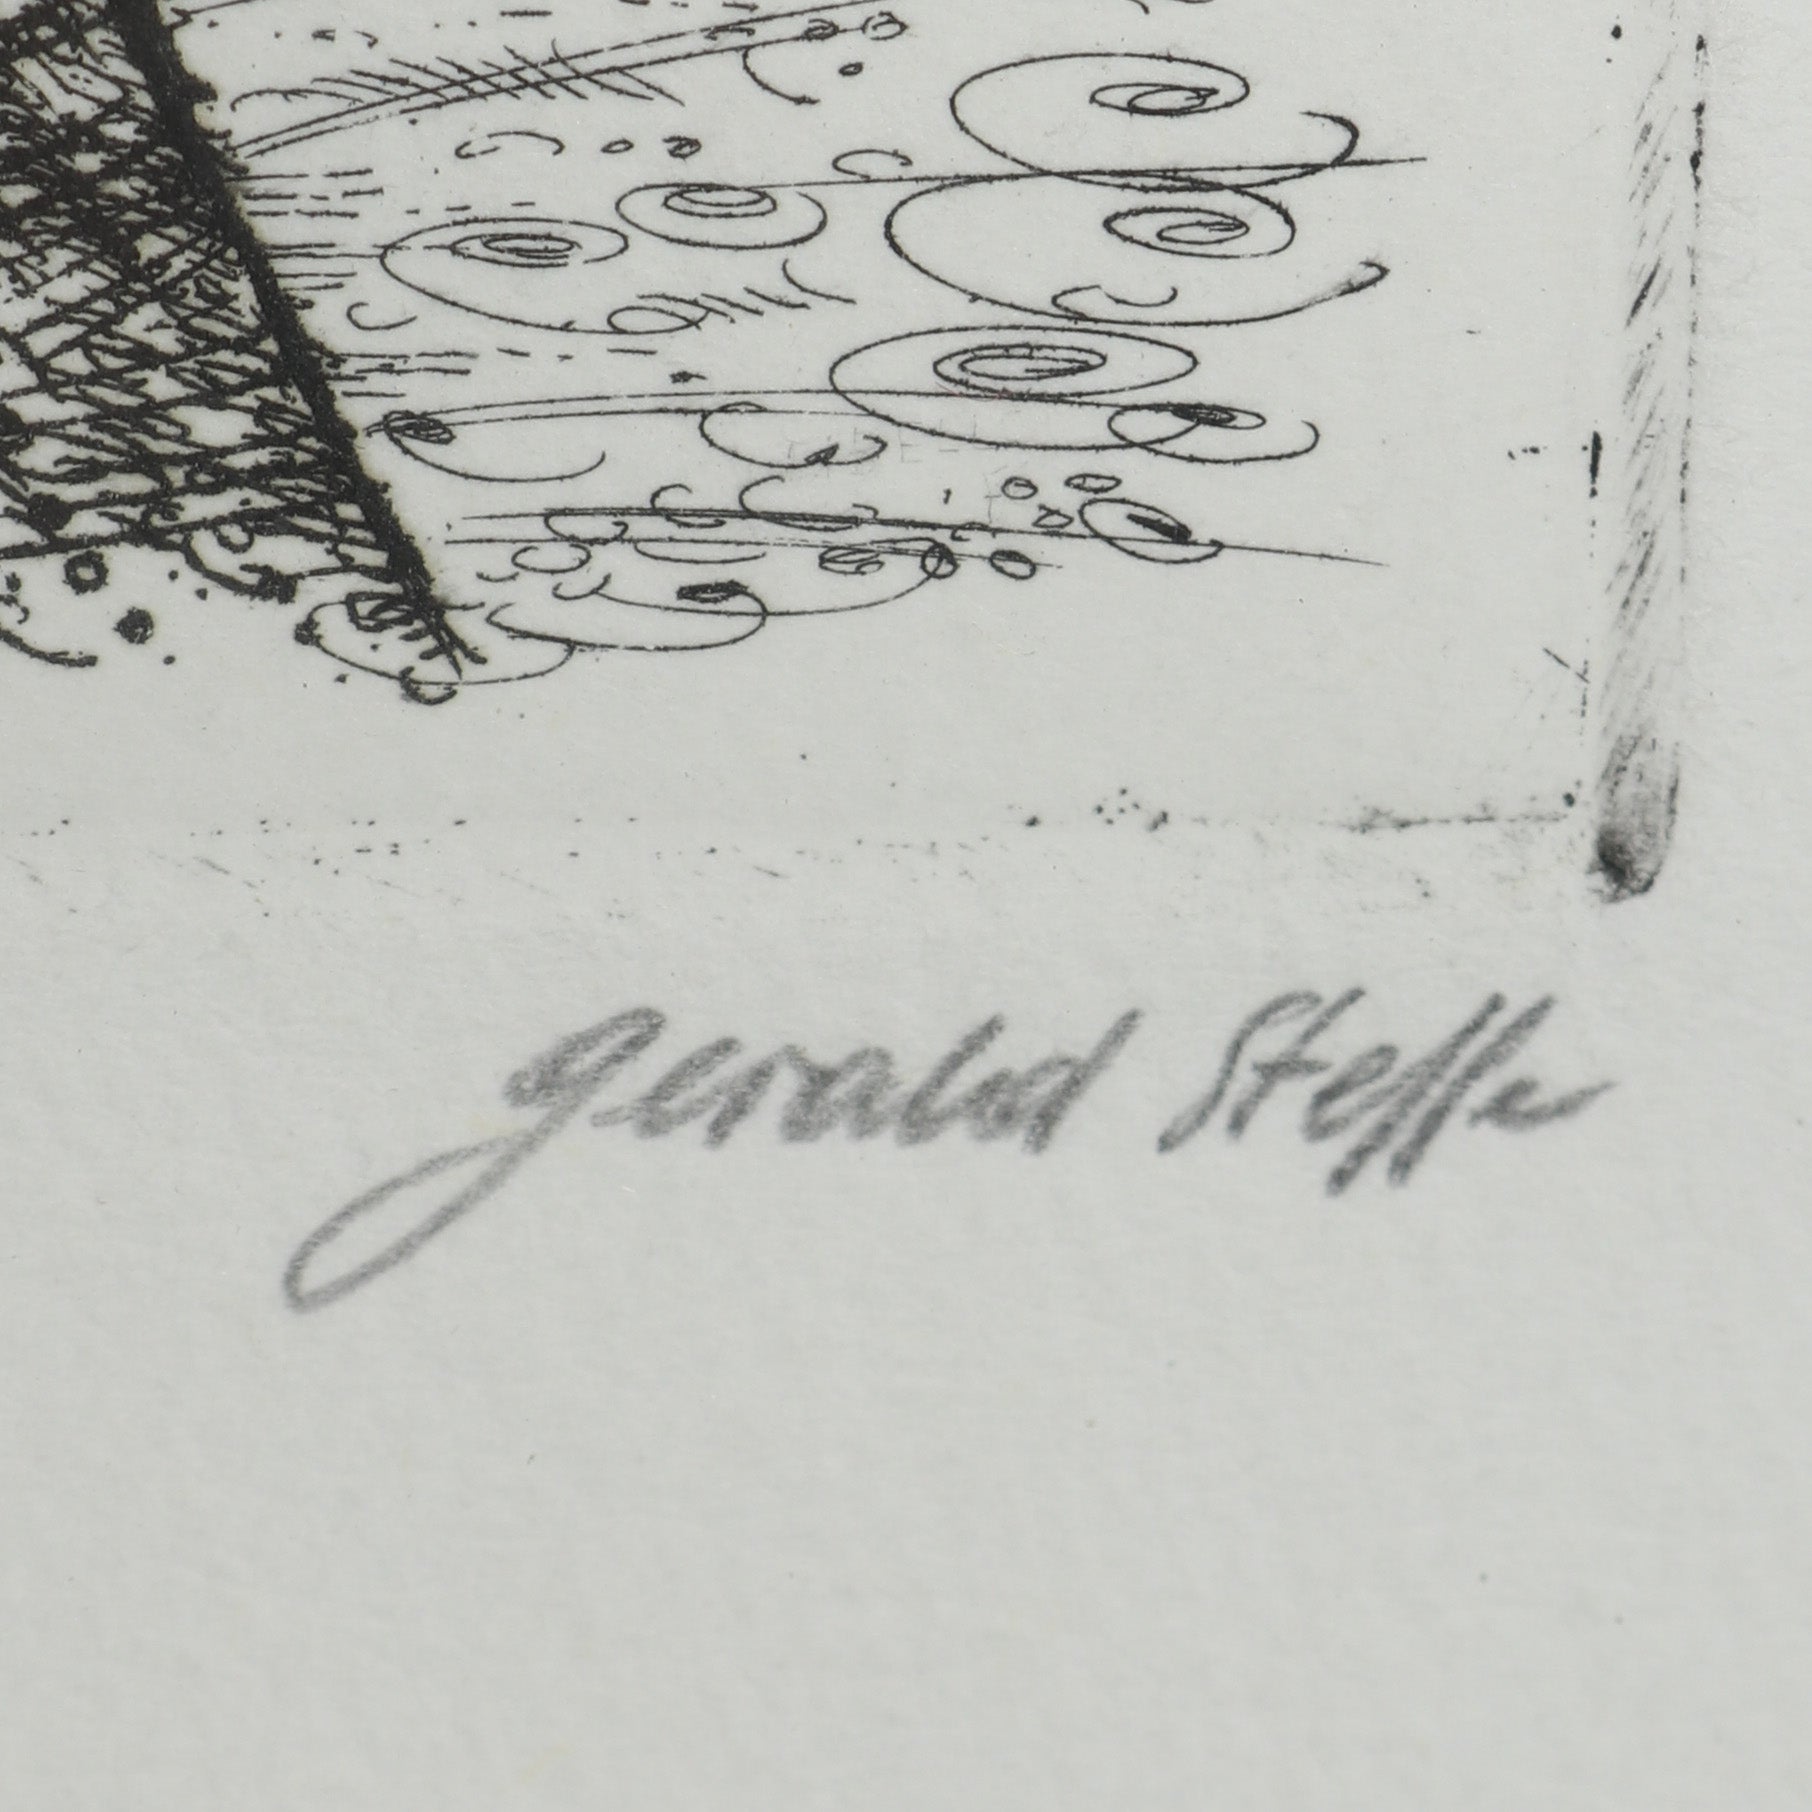 Gerald Steffe